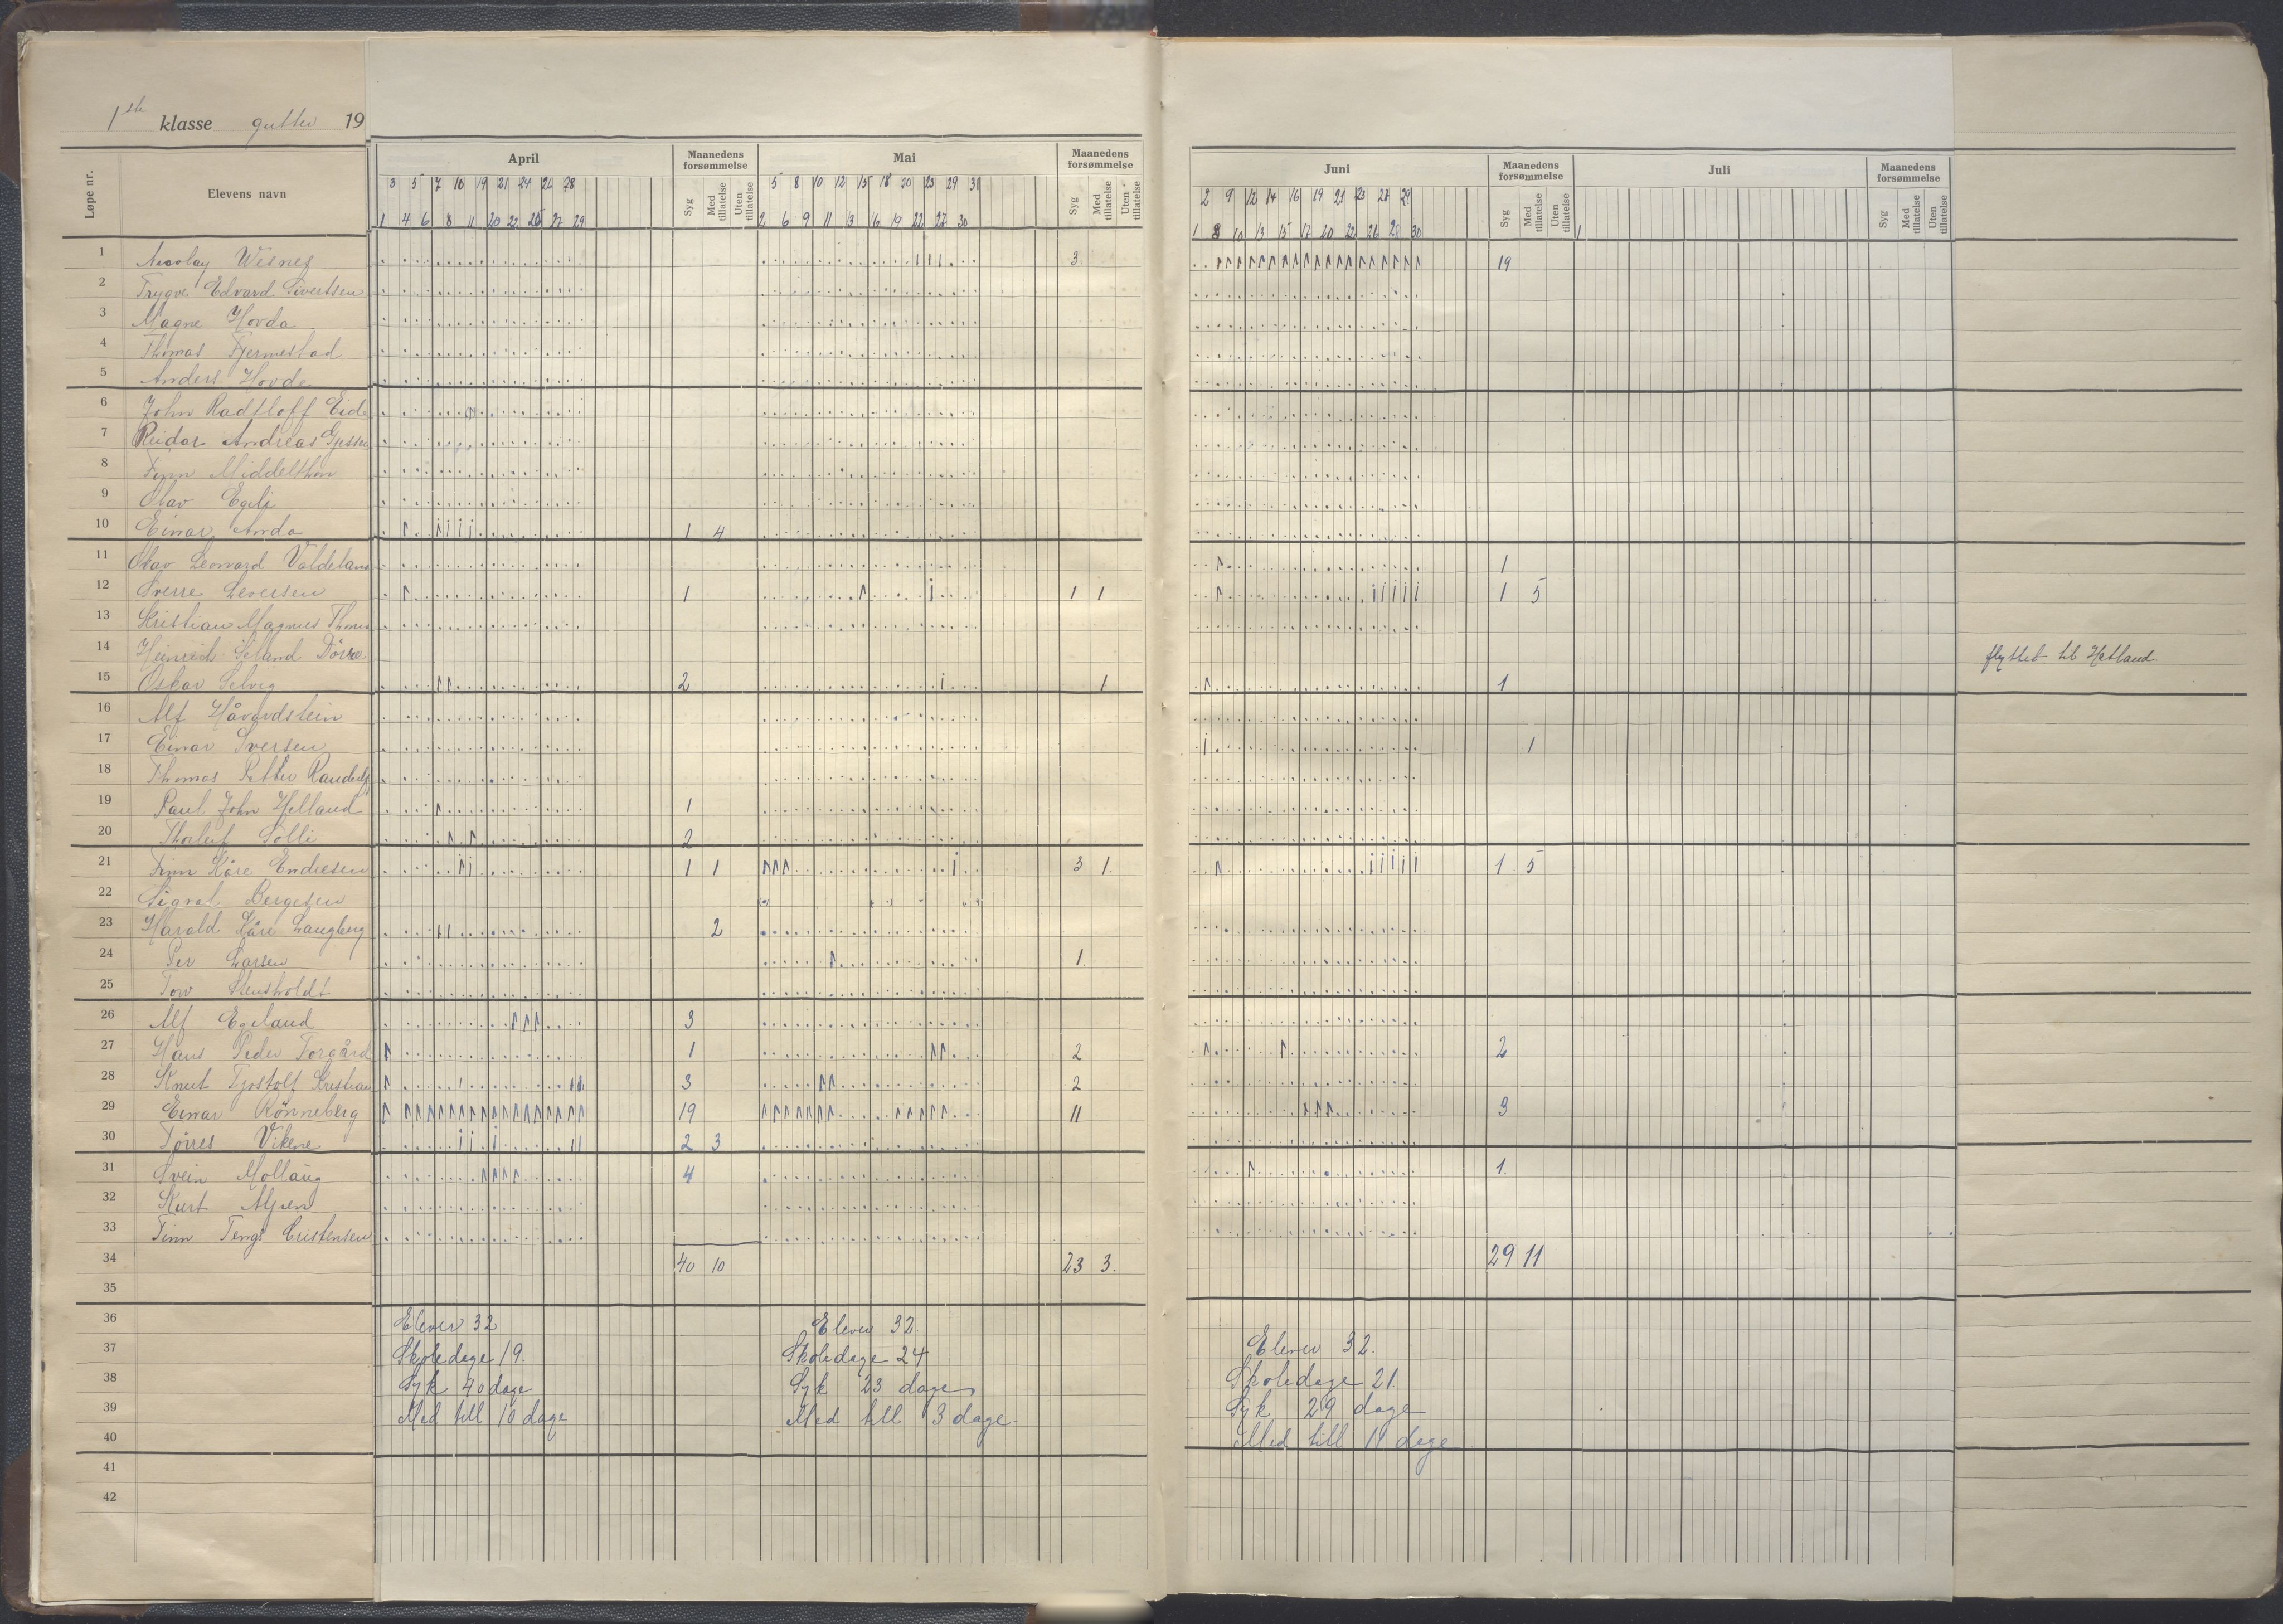 1ste klasse gutter 19
Løpe nr. Elevens navn April Maanedens forsømmelse Mai Maanedens forsømmelse Juni Maanedens forsømmelse Juli Maanedens forsømmelse
Syg Med tillatelse Uten tillatelse Syg Med tillatelse Uten tillatelse Syg Med tillatelse Uten tillatelse Syg Med tillatelse Uten tillatelse
3 5 7 10 19 21 24 26 28 5 8 10 12 15 18 20 23 29 31 2 9 12 14 16 19 21 23 27 29
1 4 6 8 11 20 22 25 27 29 2 6 9 11 13 16 19 22 27 30 1 8 10 13 15 17 20 22 26 28 30 1
1 Nicolay Wisnes 3 19
2 Trygve Edvard Sivertsen
3 Magne Hovda
4 Thomas Fjermestad
5 Anders Hovde
6 John Radtloff Eide
7 Reidar Andreas
8 Finn Middelthon
9 Olav Egeli
10 Einar Anda 1 4
11 Olav Leonard Valdeland 1
12 Sverre Seversen 1 1 1 1 5
13 Kristian Magnus
14 Heinrich Seland flyttet til Hetland.
15 Oskar Selvig 2 1 1
16 Alf Håvardstein
17 Einar Iversen 1
18 Thomas Petter
19 Paul John Helland 1
20 Thorleif Solli 2
21 Finn Kåre Endresen 1 1 3 1. 1 5
22 Sigval Bergesen
23 Harald Kåre Langberg 2
24 Per Larsen 1.
25 Tow Stensholdt
26 Alf Egeland 3
27 Hans Peder Torgård 1 2 2
28 Knut Tjostolf Kristian 3 2
29 Einar Rönneberg 19 11 3
30 Törres Vikene 2 3
31 Svein Mollaug 4 1.
32 Kurt
33 Finn Tengs Cristensen
34 40 10 23 3. 29 11
35
36 Elever 32 Elever 32. Elever 32.
37 Skoledage 19. Skoledage 24 Skoledage 21.
38 Syk 40 dage Syk 23 dage Syk 29 dage
39 Med till 10 dage Med till 3 dage. Med till 11 dage
40
41
42